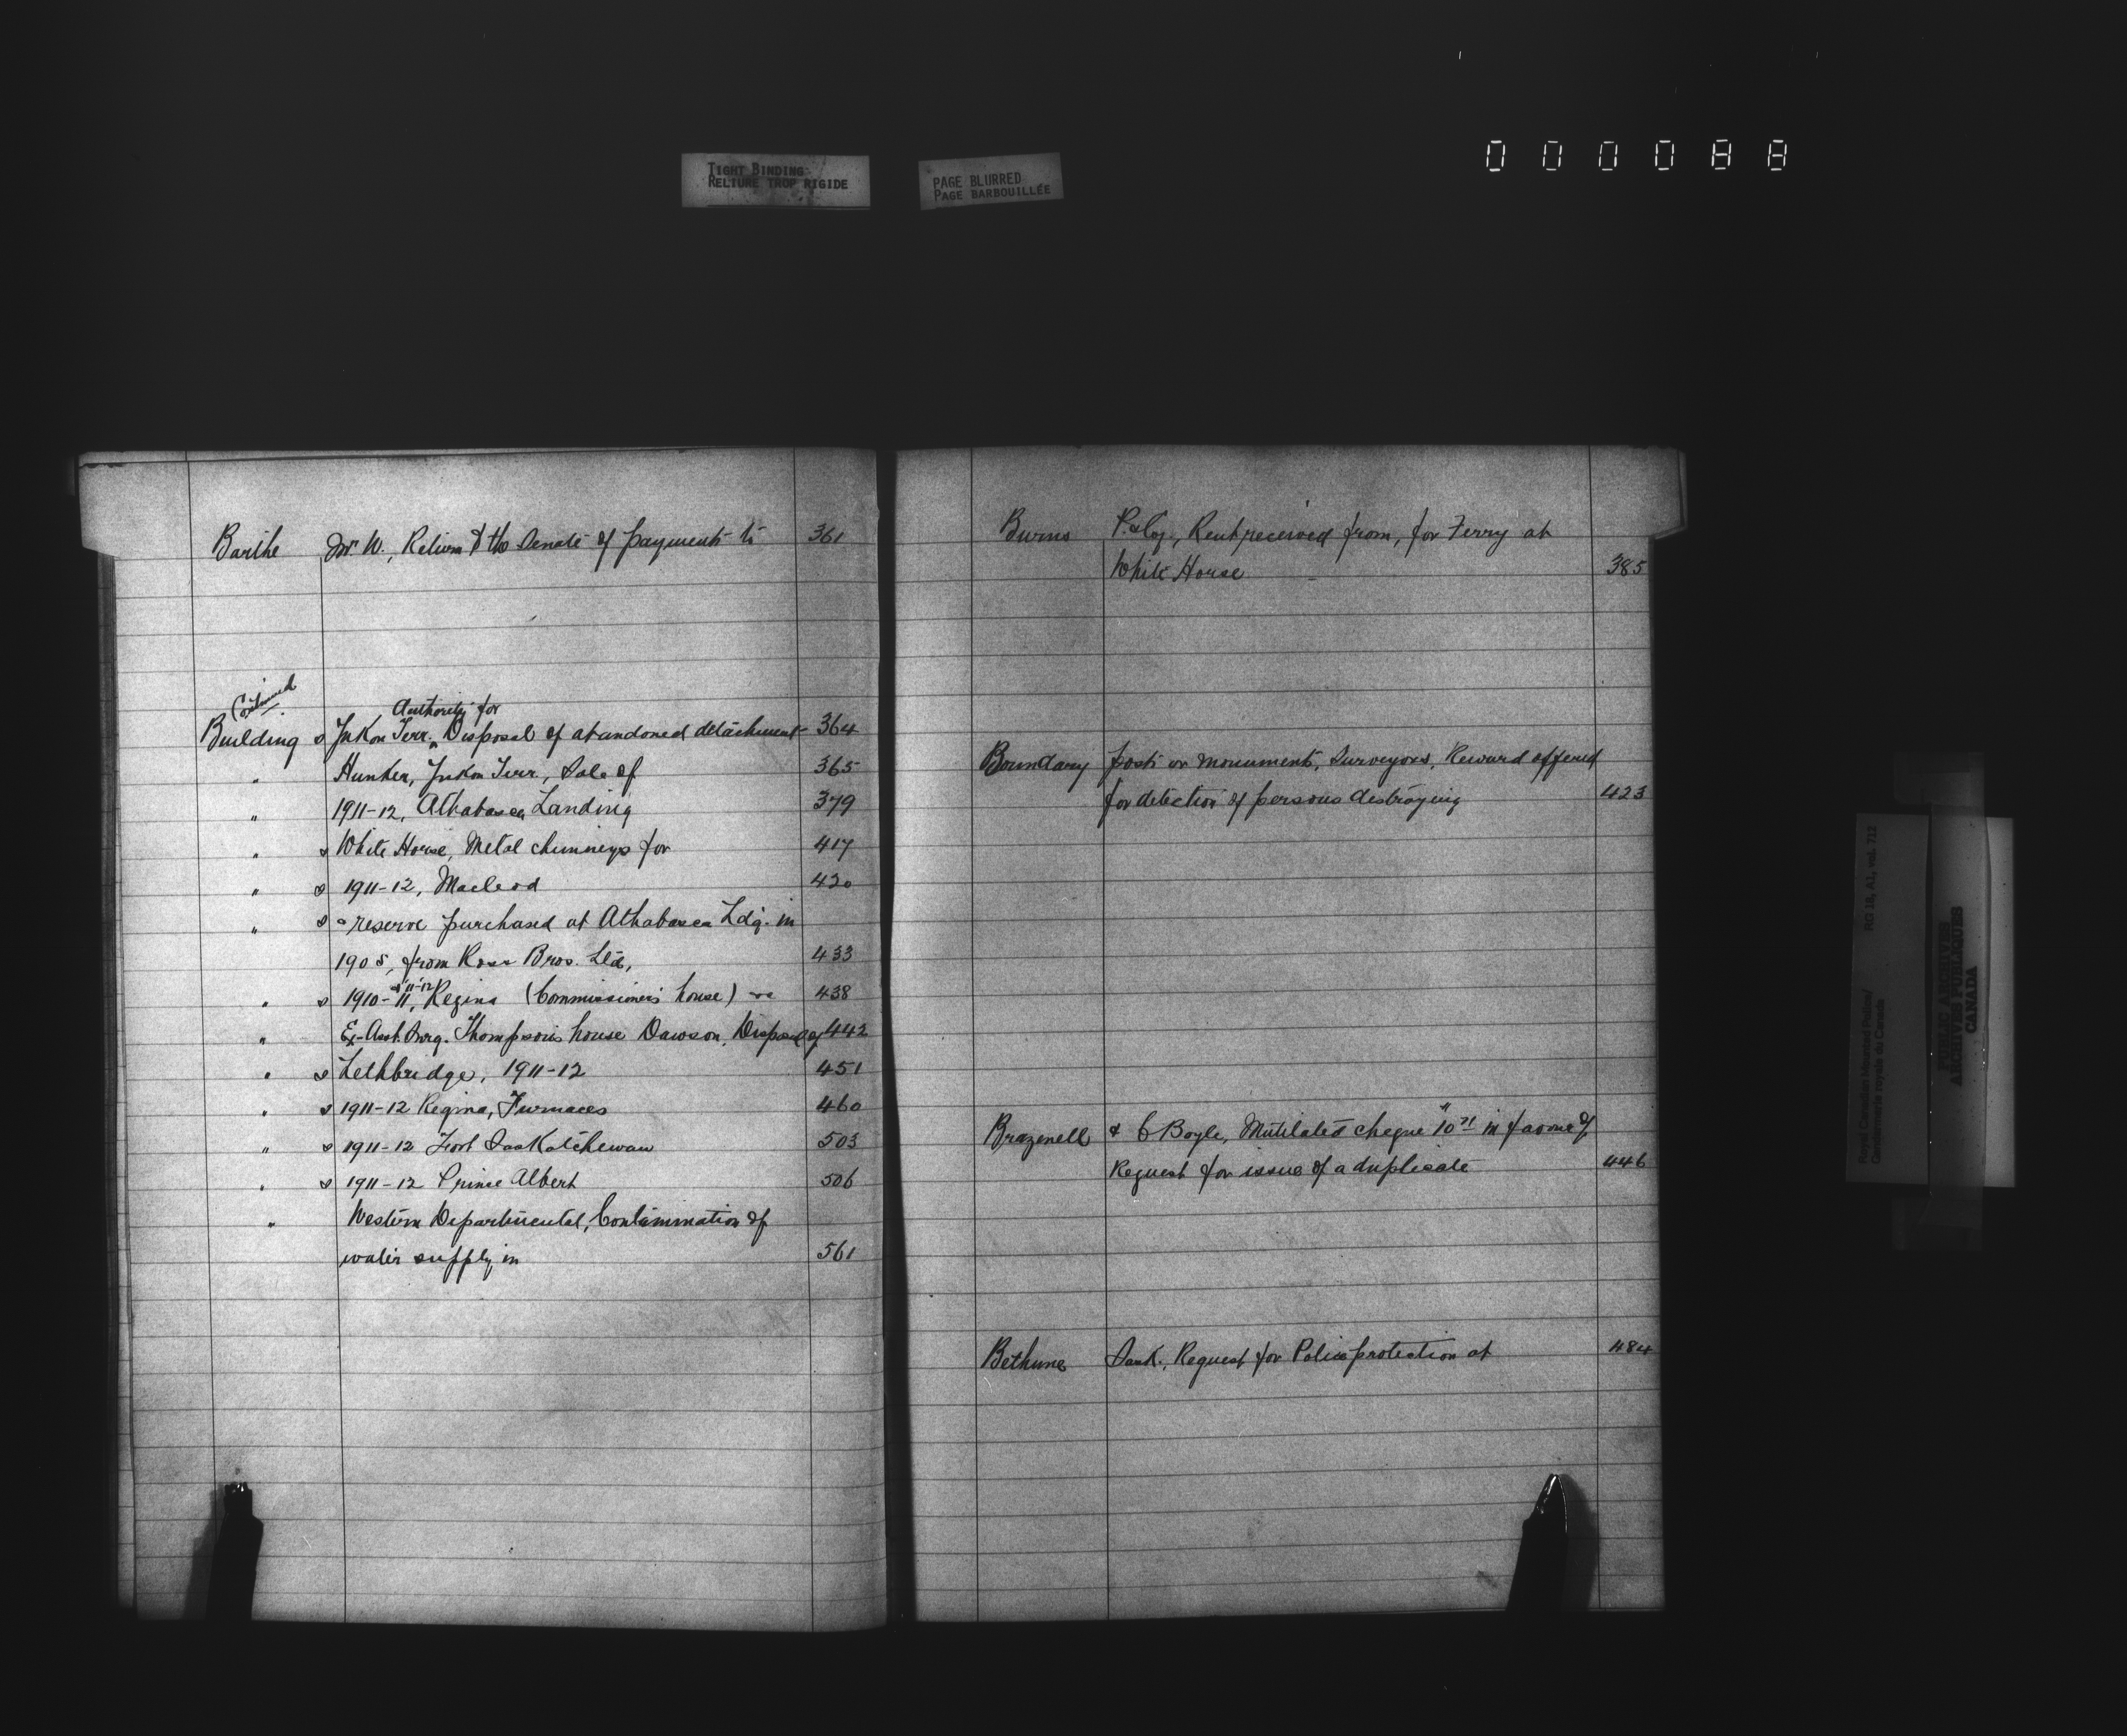 TIGHT BINDING
RELIURE TROP RIGIDE
PAGE BLURRED
PAGE BARBOUILLÉE
000088
Barthe Mr W., Return to the Senate of payments to 361
Continued
Authority for
Building s Yukon Terr. Disposal of abandoned detachment 364
" Hunker, Yukon Terr., Sale of 365
" 1911-12, Athabasca Landing 379
" s White Horse, Metal chimneys for 417
" s 1911-12, Macleod 420
" s reserve purchased at Athabasca Ldg. in
1905, from Ross Bros. Ltd, 433
& '11-'12
" s 1910-11, Regina (Commissioner's house) 438
" Ex-Asst. Surg. Thompson's house Dawson, Disposal of 442
" s Lethbridge, 1911-12 451
" s 1911-12 Regina, Furnaces 460
" s 1911-12 Fort Saskatchewan 503
" s 1911-12 Prince Albert 506
" Western Departmental, Contamination of
water supply in 561
Burns P. & Coy., Rent received from, for Ferry at
White Horse 385
Boundary posts or monuments, Surveyors, Reward offered
for detection of persons destroying 423
Brazenell & C Boyle, Mutilated cheque 10 71 in favour of
Request for issue of a duplicate 446
Bethune Sask., Request for Police protection at 484
Royal Canadian Mounted Police/
Gendarmerie royale du Canada
RG 18, A1, vol. 712
PUBLIC ARCHIVES
ARCHIVES PUBLIQUES
CANADA